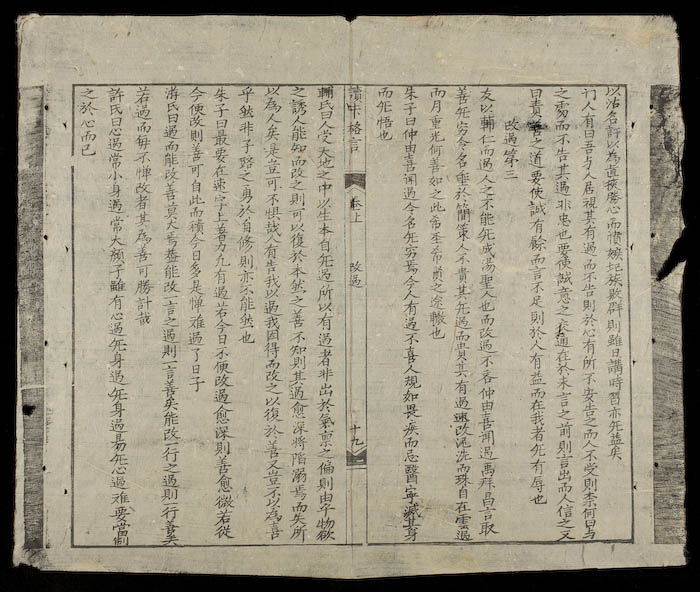 以沽名訐以為直挾勝心而憤嫉圮族敗群則雖日講時習亦无益矣
訂人有曰吾与人居視其有過而不告則於心有所不安告之而人不受則柰何曰与
之處而不告其過非忠也要使誠意之交通在於未言之前則言出而人信之又
曰責善之道要使誠有餘而言不足則於人有益而在我者无有辱也
改過第三
友以輔仁而過人之不能无成湯聖人也而改過不吝仲由喜聞過禹拜昌言取
善无穷令名垂於簡策人不貴其无過而貴其有過速改滌洗而珠自在雲過
而月重光何善如之此常丕希貢之途轍也
朱子曰仲由喜聞過令名无穷焉今人有過不喜人規如畏疾而忌醫寧滅其身
而无悟也
讀朱格言
卷上
改過
十九
輔氏曰人受天地之中以生本自无過所以有過者非出於氣稟之偏則由乎物欲
之誘人能知而改之則可以復於本然之善不知則其過愈深將陷溺焉而失所
以為人矣是豈可不惧哉人有告我以過我因得而改之以復於善又豈不以為喜
乎然非子路之勇於自修則亦不能然也
朱子曰最要在速字上着力凡有過若今日不便改過愈深則善愈微若從
今便改則善可自此而積今日多是憚难過了日子
游氏曰過而能改善莫大焉盖能改一言之過則一言善矣能改一行之過則一行善矣
若過而每不憚改者其為善可勝計哉
許氏曰心過常小身過常大顏子雖有心過无身過无身過易无心過难要當制
之於心而已